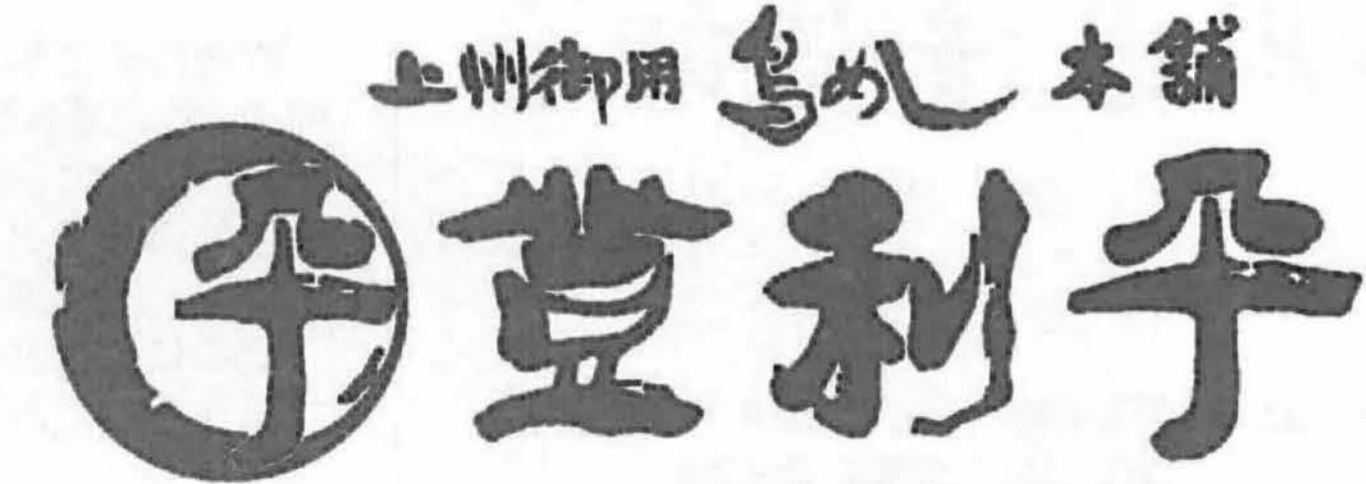 上州御用 鳥めし 本舗
平 登利平